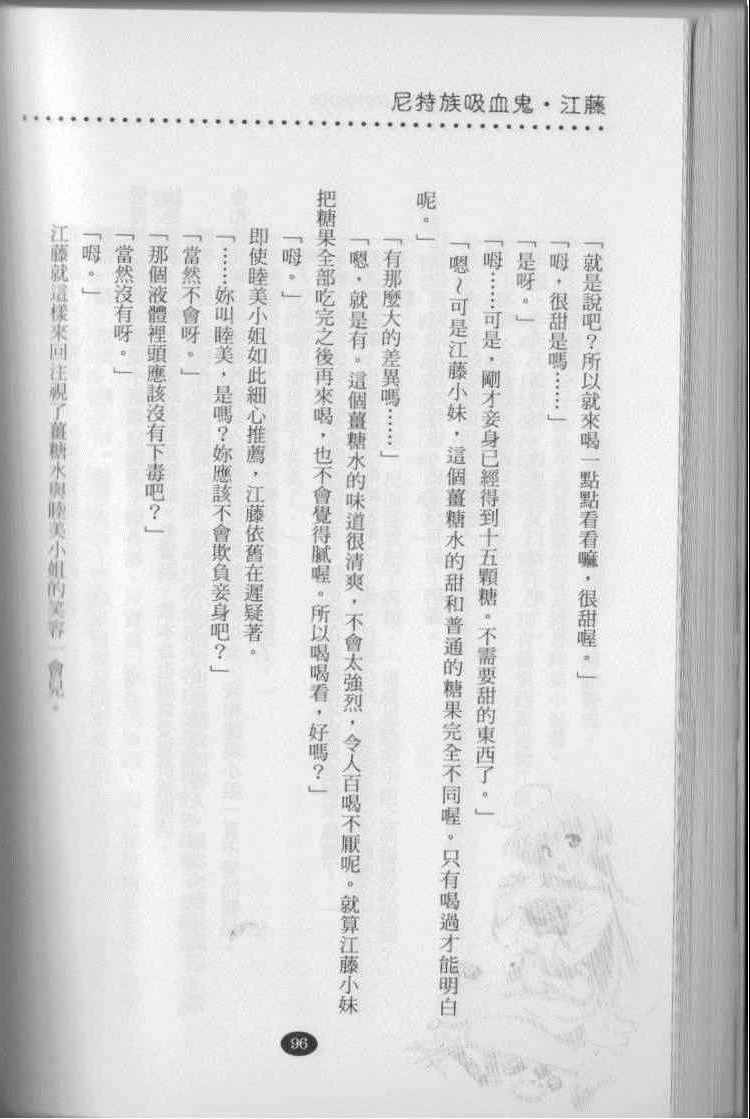 尼特族吸血鬼・江藤
「就是說吧？所以就來喝一點點看看嘛，很甜喔。」
「呣，很甜是嗎……」
「是呀。」
「呣……可是，剛才妾身已經得到十五顆糖。不需要甜的東西了。」
「嗯～可是江藤小妹，這個薑糖水的甜和普通的糖果完全不同喔。只有喝過才能明白
呢。」
「有那麼大的差異嗎……」
「嗯，就是有。這個薑糖水的味道很清爽，不會太強烈，令人百喝不厭呢。就算江藤小妹
把糖果全部吃完之後再來喝，也不會覺得膩喔。所以喝喝看，好嗎？」
「呣。」
即使睦美小姐如此細心推薦，江藤依舊在遲疑著。
「……妳叫睦美，是嗎？妳應該不會欺負妾身吧？」
「當然不會呀。」
「那個液體裡頭應該沒有下毒吧？」
「當然沒有呀。」
「呣。」
江藤就這樣來回注視了薑糖水與睦美小姐的笑容一會兒。
96